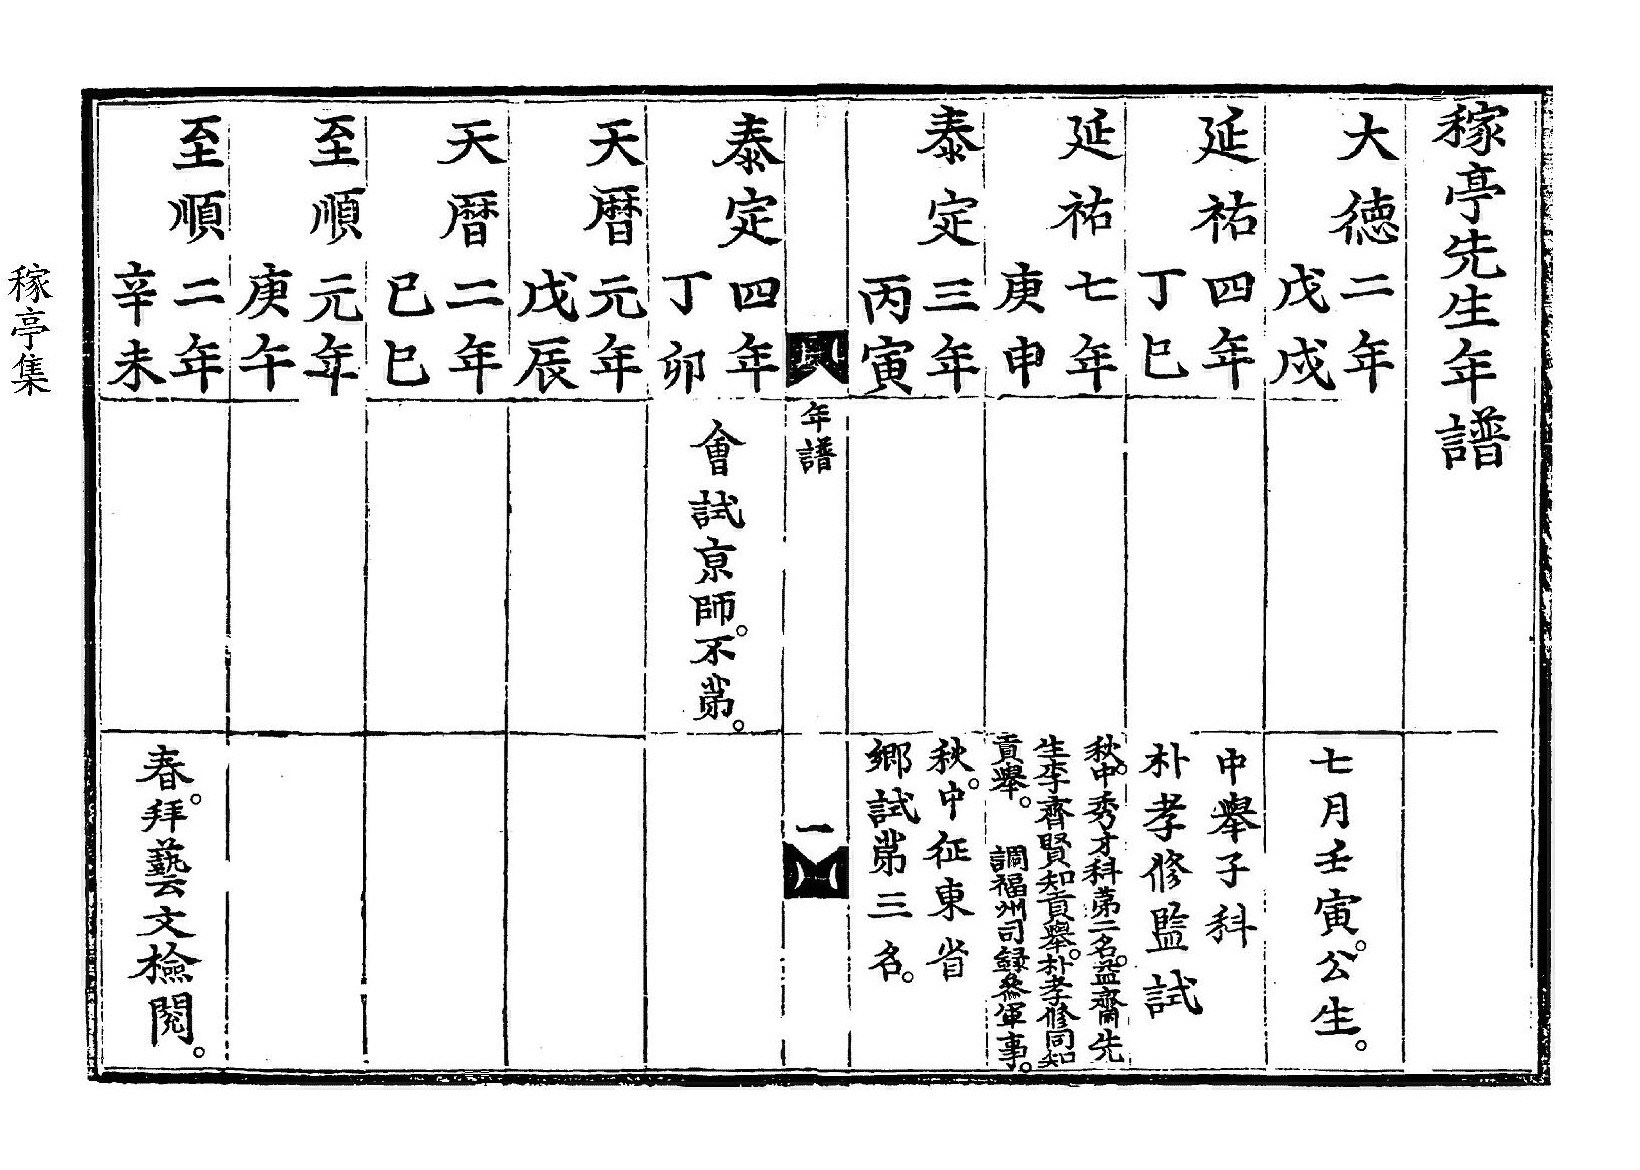 稼亭先生年譜
大德二年
戊戌
七月壬寅。公生。
延祐四年
丁巳
中舉子科
朴孝修監試
延祐七年
庚申
秋。中秀才科第二名。益齋先
生李齊賢知貢舉。朴孝修同知
貢舉。　調福州司錄參軍事。
泰定三年
丙寅
秋。中征東省
鄉試第三名。
年譜
一
泰定四年
丁卯
會試京師。不第。
天曆元年
戊辰
天曆二年
己巳
至順元年
庚午
至順二年
辛未
春。拜藝文檢閱。
稼亭集